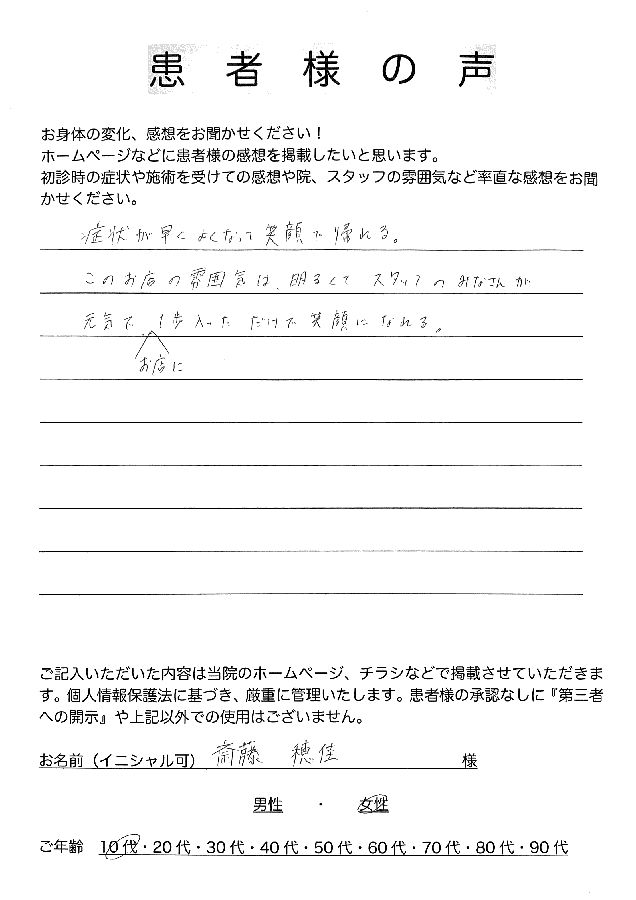 患者様の声
お身体の変化、感想をお聞かせください！
ホームページなどに患者様の感想を掲載したいと思います。
初診時の症状や施術を受けての感想や院、スタッフの雰囲気など率直な感想をお聞
かせください。
症状が早くよくなって笑顔で帰れる。
このお店の雰囲気は、明るくてスタッフのみなさんが
元気で、1歩入っただけで笑顔になれる。
お店に
ご記入いただいた内容は当院のホームページ、チラシなどで掲載させていただきま
す。個人情報保護法に基づき、厳重に管理いたします。患者様の承認なしに『第三者
への開示』や上記以外での使用はございません。
お名前（イニシャル可） 斎藤 穂佳 様
男性 ・ 女性
ご年齢 10代・20代・30代・40代・50代・60代・70代・80代・90代